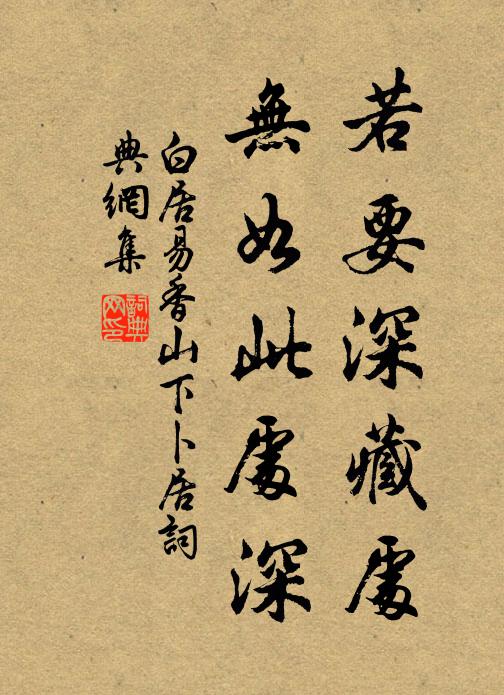 若要深藏處
無如此處深
白居易香山下卜居詞
典網集
詞典網印